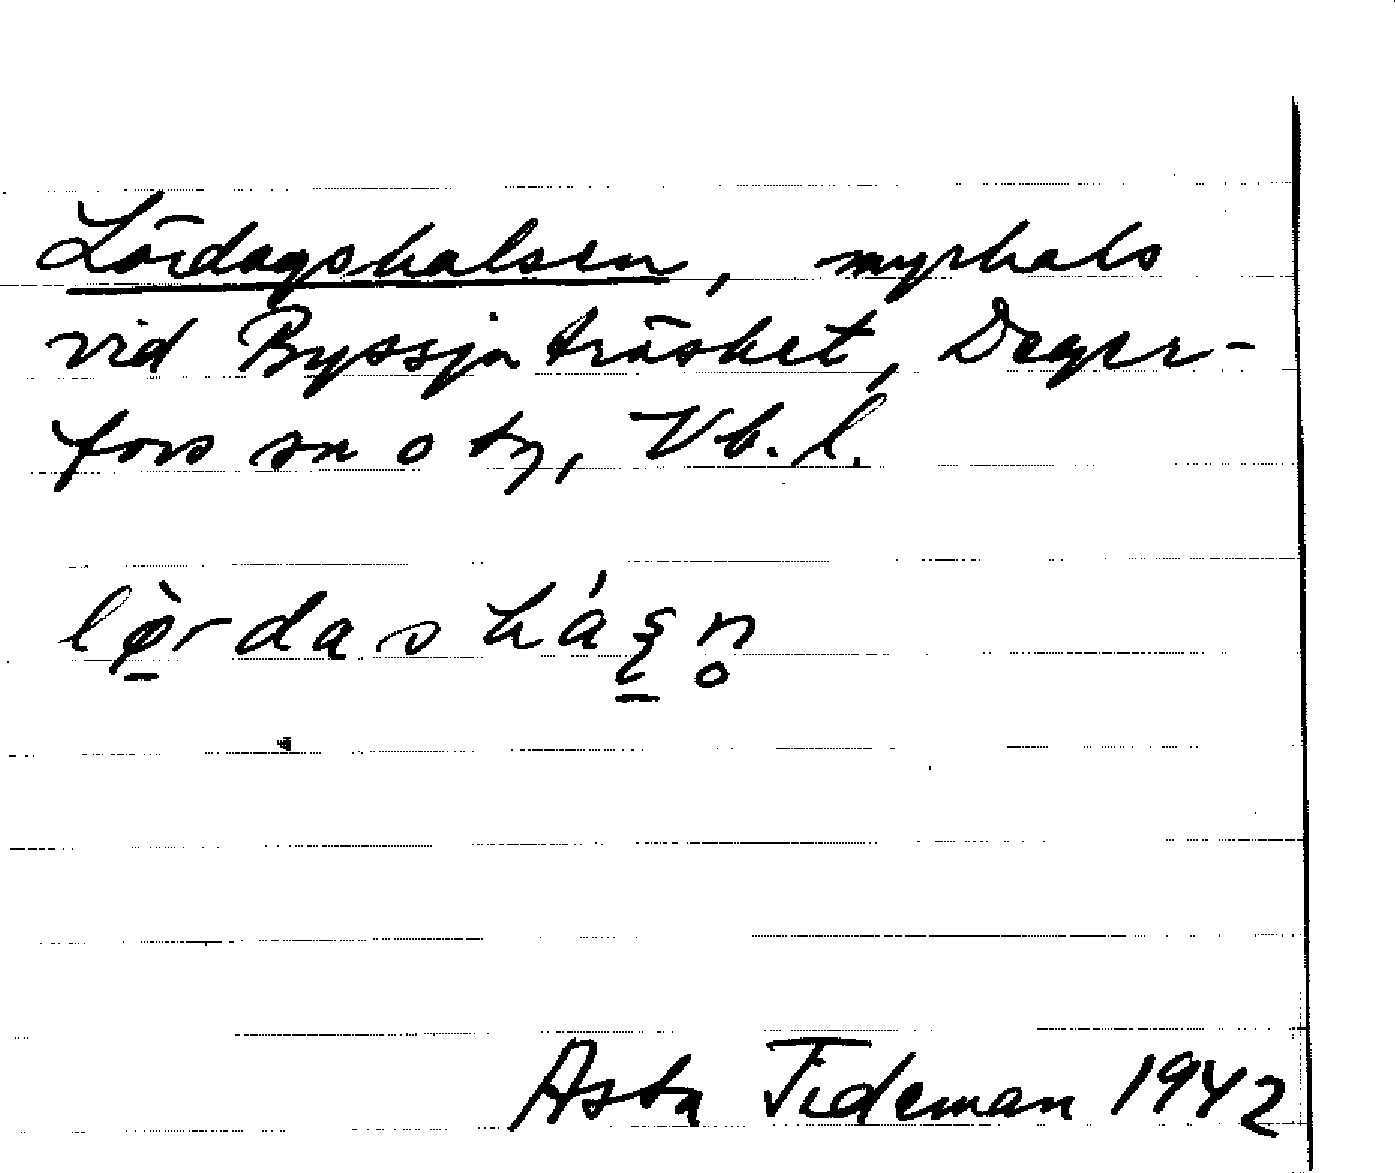 Lördagshalsen, myrhals
vid Byssjaträsket, Deger-
fors sn o tg, Vb.l.
Asta Tideman 1942